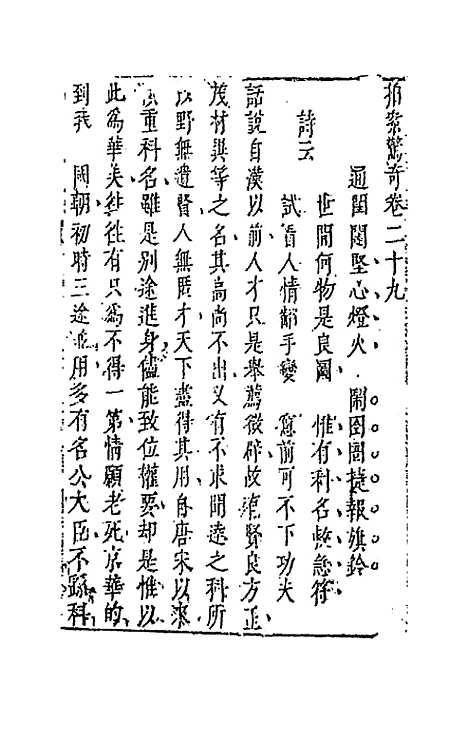 拍案驚奇卷二十九
通閨闥堅心燈火 鬧囹圄捷報旗鈴
詩云
世間何物是良圖 惟有科名救急符
試看人情翻手變 窻前可不下功夫
話說自漢以前人才只是舉薦徵辟故有賢良方正
茂材異等之名其高尚不出又有不求聞達之科所
以野無遺賢人無匿才天下盡得其用自唐宋以來
重科名雖是別途進身儘能致位權要却是惟以
此爲華美往往有只爲不得一第情願老死京華的
到我 國朝初時三途並用多有名公大臣不繇科